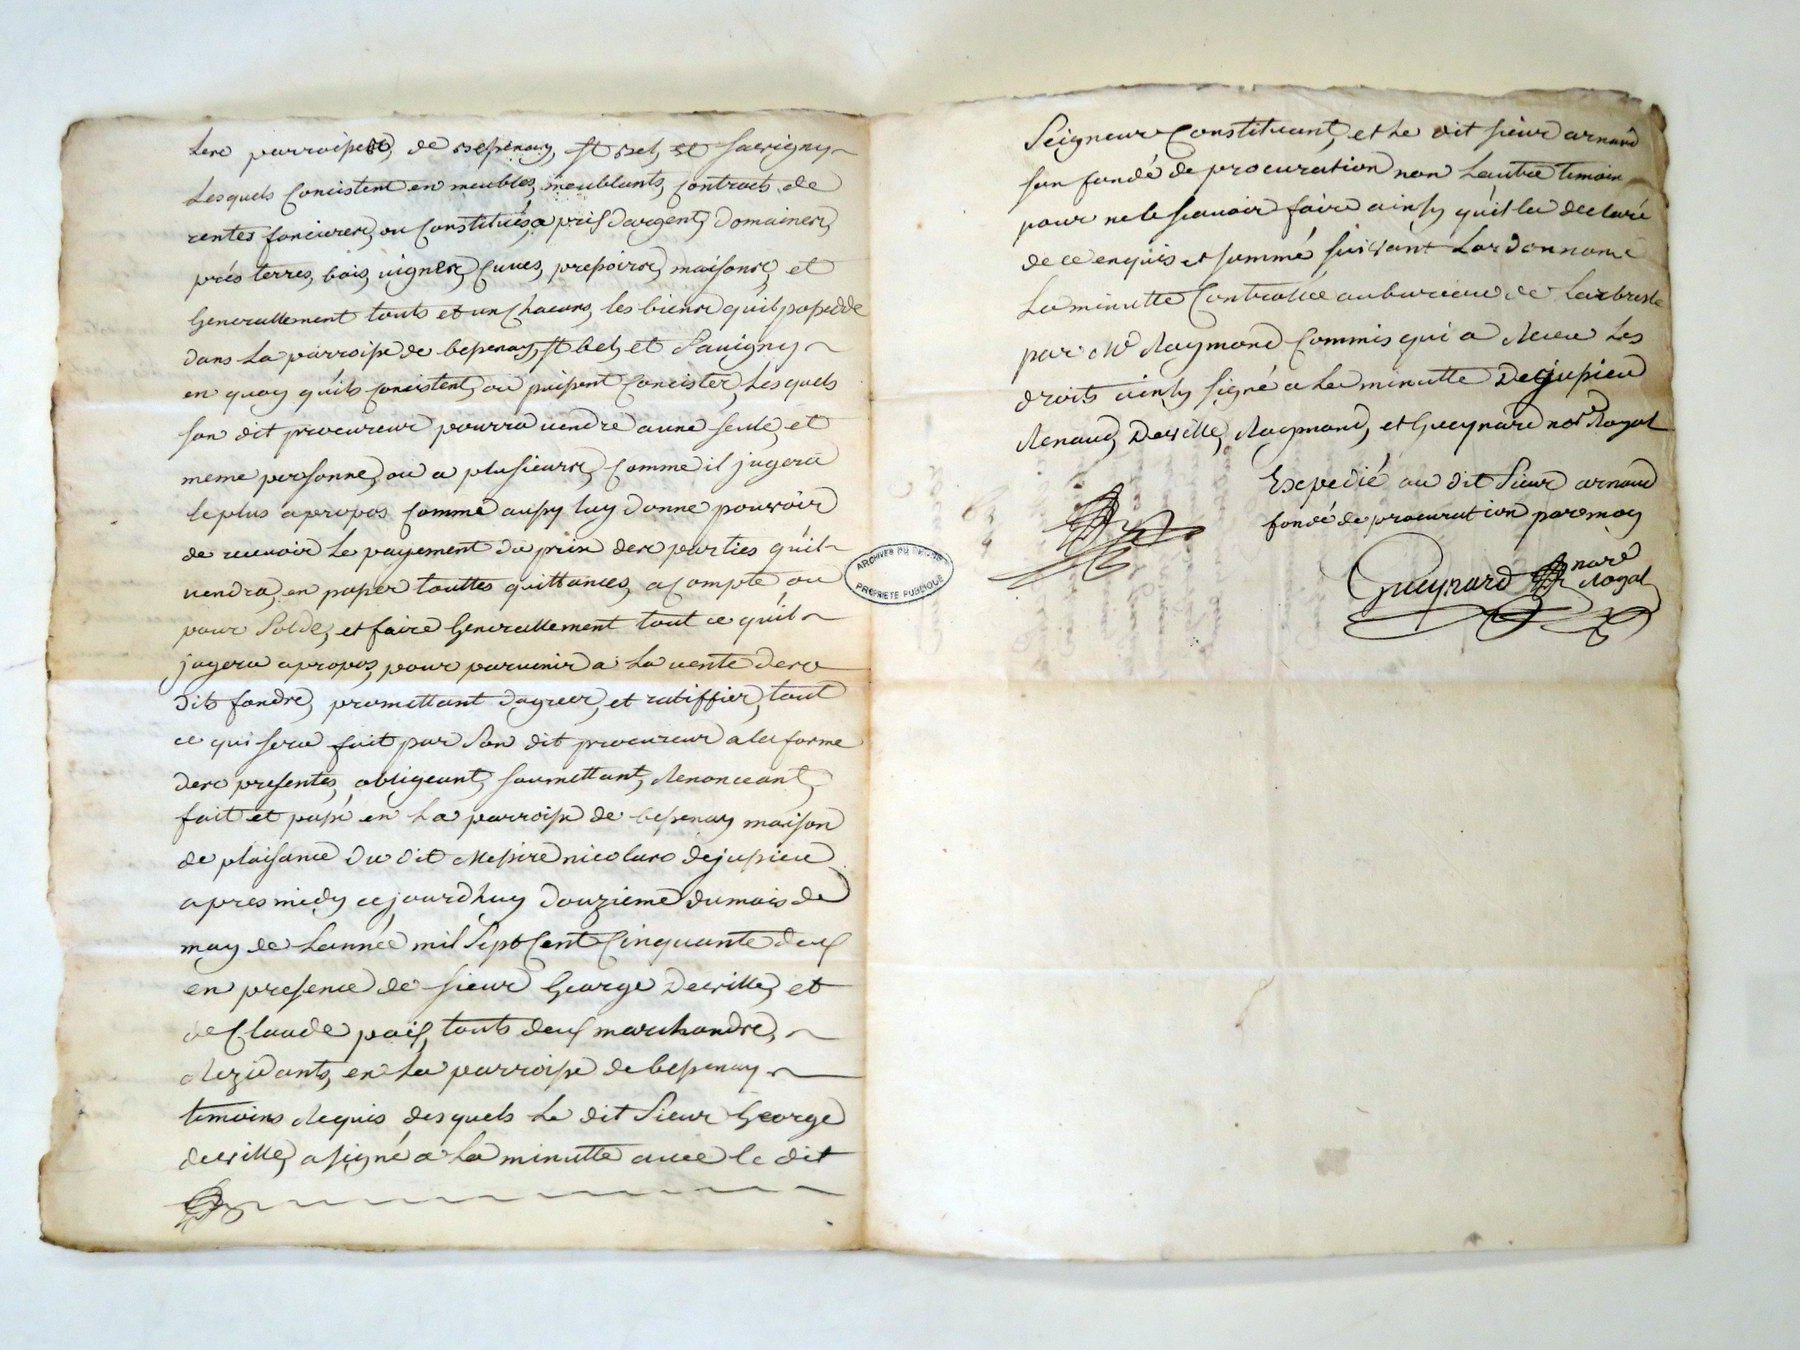 Les parroisses de Bessenay, St Bel, et Savigny
Lesquels Concistent en meubles, meublants, contracts de
rentes foncieres, ou Constitués, a prix dargent, domaines,
prés terres, bois, vignes, Cuves, pressoirs, maisons, et
Generallement touts et un Chacuns, les biens quil possedde
dans La parroisse de bessenay, St bel, et Savigny
en quoy quils concistent, ou puissent Concister, Lesquels
son dit procureur pourra vendre a une seule, et
meme personne, ou a plusieurs, Comme il jugera
le plus apropos Comme aussy luy donne pouvoir
de recevoir Le payement du prix des parties quil
vendra, en passer touttes quittances, a Compte ou
pour Solde, et faire Generallement tout ce quil
jugera apropos, pour parvenir a La vente des
dits fonds, promettant dagreer, et ratiffier, tout
ce qui sera fait par Son dit procureur a la forme
des presentes, obligeant, soumettant, Renonceant,
fait et passé en La parroisse de bessenay maison
de plaisance du dit Messire nicolas dejussieu
apres midy cejourdhuy douzieme du mois de
may de Lannée mil Sept Cent Cinquante deux
en presence de sieur George Deville, et
de Claude paix, touts deux marchands,
Rezidants, en La parroisse de bessenay
temoins Requis desquels Le dit Sieur George
deville, a signé a La minutte avec le dit
Seigneur Constituant, et Le dit sieur arnaud
son fondé de procuration non Lautre temoin
pour ne le scavoir faire ainsy quil la declaré
de ce enquis et sommé suivant Lordonnance
La minutte Controllée au bureau de Larbresle
par Mr Raymond Commis qui a Receu Les
droits ainsy signé a La minutte Dejussieu
Renaud, Deville, Raymond, et Gueynard nore Royal
Expedié au dit Sieur arnaud
fondé de procuration par moy
ARCHIVES DU RHÔNE
PROPRIÉTÉ PUBLIQUE
Gueynard nore
Royal